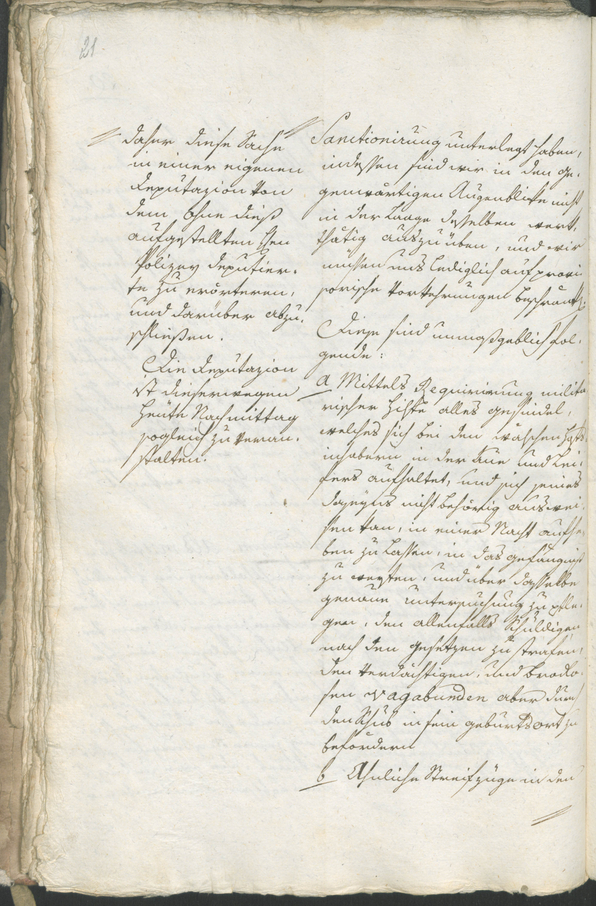 21.
daher diese Sache
in einer eigenen
Deputazion von
dem ohne dieß
aufgestellten Hren
Polizey Deputier-
te zu erörteren,
und darüber abzu-
schließen.
Die Deputazion
ist dieserwegen
heute Nachmittag
sogleich zu veran-
stalten.
Sanctionirung unterlegt haben,
indessen sind wir in dem ge-
genwärtigen Augenblicke nicht
in der Laage deßelben werk-
thätig auszuüben, und wir
müßen uns lediglich auf provi-
sorische Vorkehrungen beschränk
Diese sind unmaßgeblich fol-
gende:
a Mittels Requirirung milita-
rischer Hilfe alles Gesindel,
welches sich bei den
inhabern in der Aue und Lei-
fers aufhaltet, und sich jenes
nicht behörig auswei-
sen kan, in einer Nacht aufhe-
ben zu lassen, in das Gefängniß
zu werfen, und über dasselbe
genaue Untersuchung zu pfle-
gen, den allenfalls Schuldigen
nach den Gesetzen zu strafen,
den Verdächtigen, und Brodlo-
sen Vagabunden aber durch
den Schub in sein Geburtsort zu
befördern
b Ähnliche Streifzüge in den